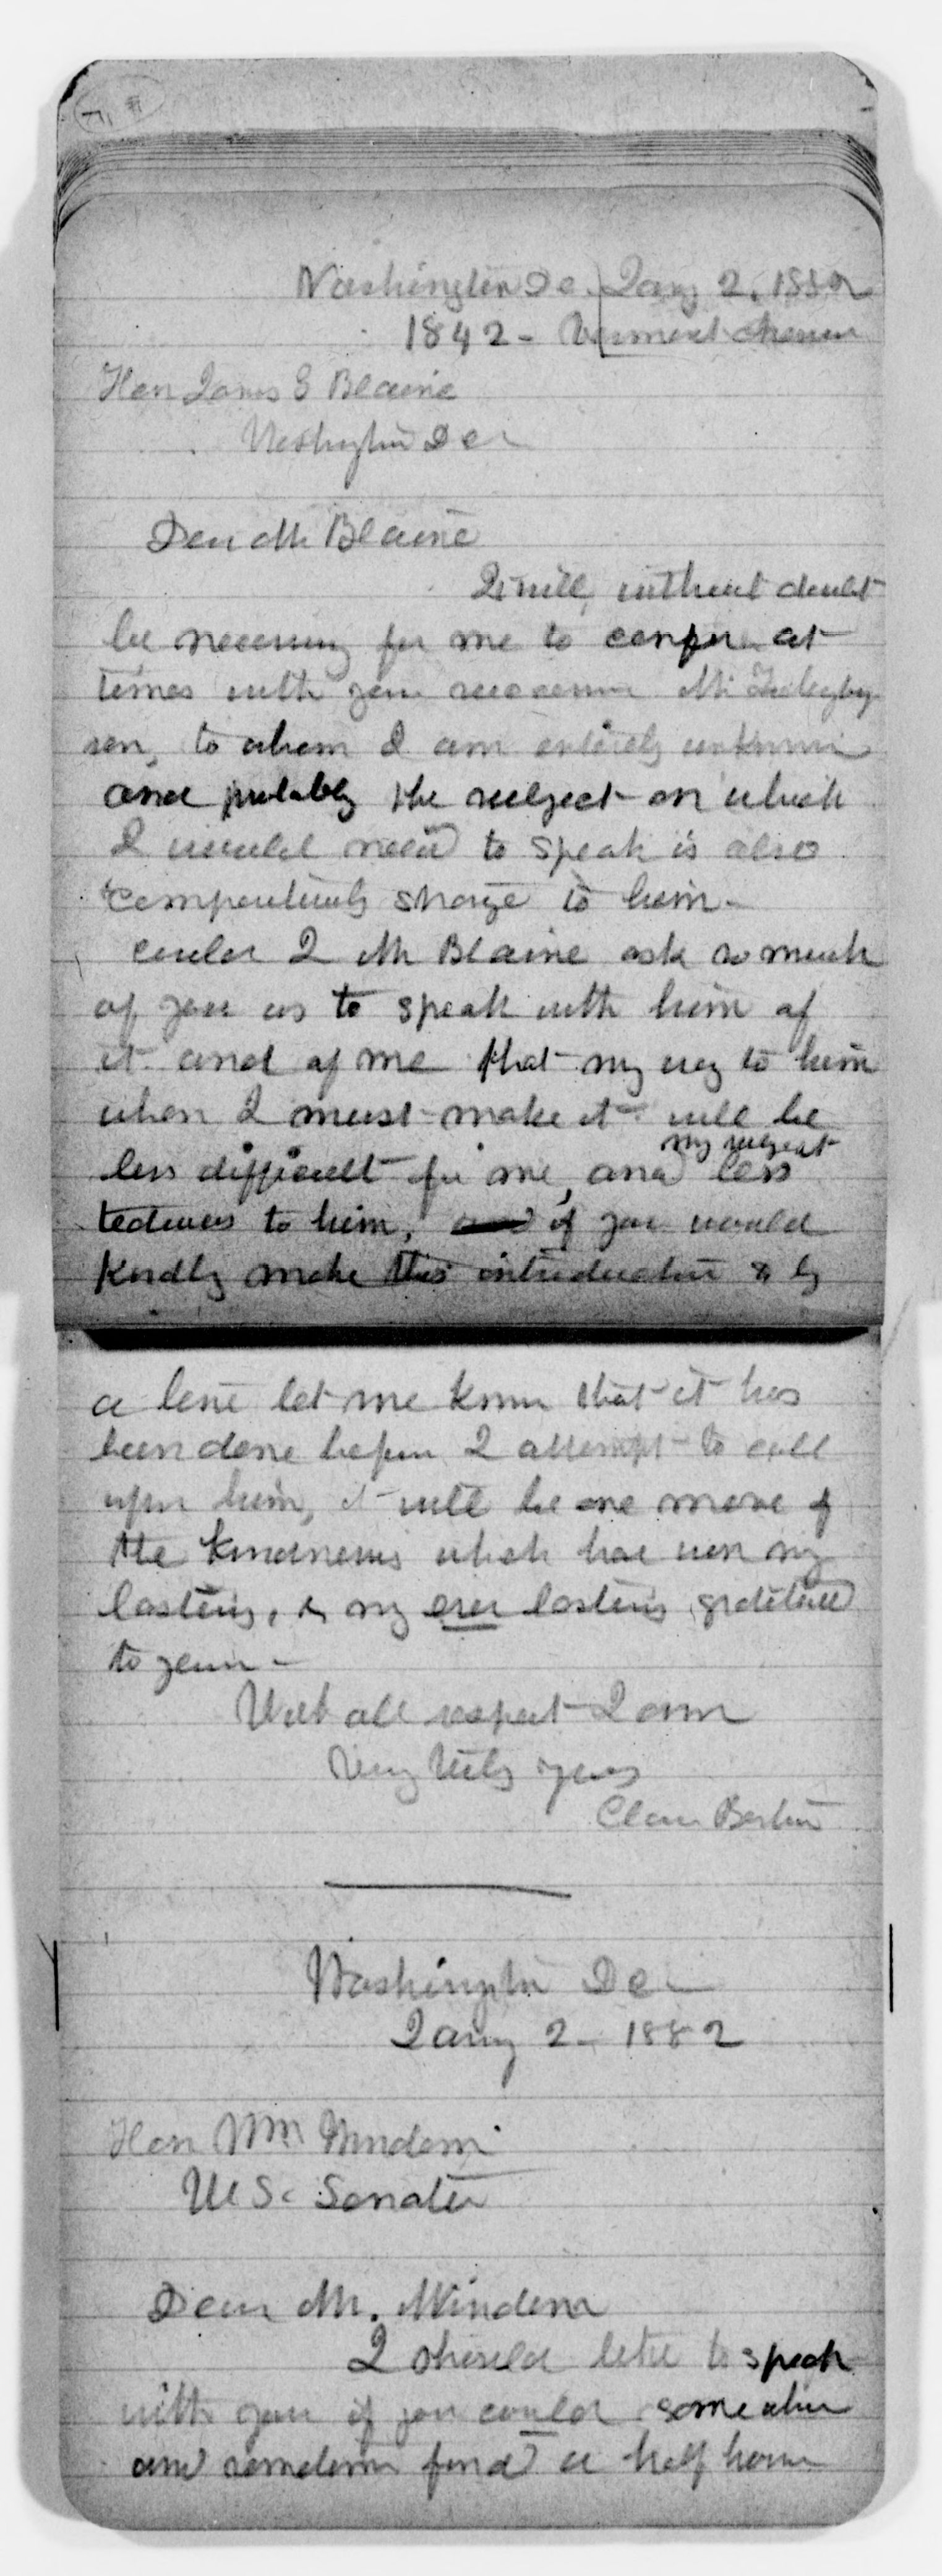 Washington D.C. Jany 2. 1882
1842 - Vermont Avenue
Hon James G Blaine
Washington D C
Dear Mr Blaine
It will, without doubt
be necessary for me to confer at
times with your successor Mr Frelinghuy
sen, to whom I am entirely unknown
and probably the subject on which
I would need to speak is also
comparatively strange to him -
Could I Mr Blaine ask so much
of you as to speak with him of
it and of me that my way to him
when I must make it will be
less difficult for me, and my subject less
tedious to him, and if you would
kindly make this introduction & by
a line let me know that it has
been done before I attempt to call
upon him, it will be one more of
the kindnesses which have won my
lasting, & my ever lasting gratitude
to you -
With all respect I am
Very truly yours
Clara Barton
Washington D C
Jany 2 - 1882
Hon Wm Windom
U S. Senator
Dear Mr. Windom
I should like to speak
with you if you could somewhere
and sometime find a half hour